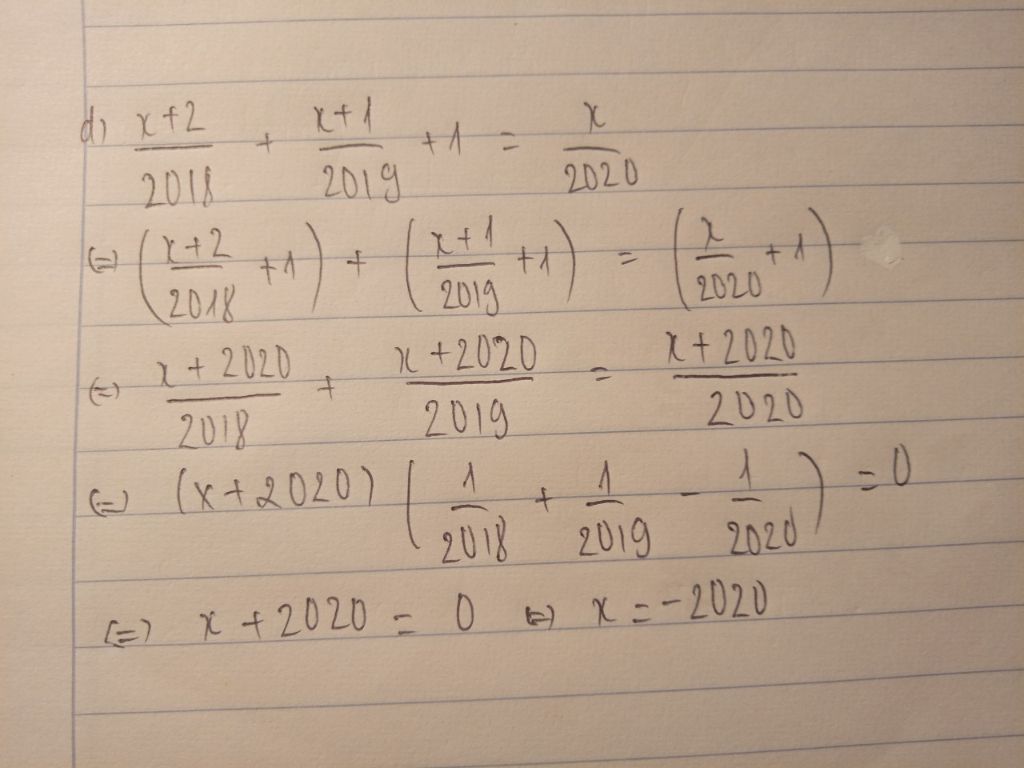 d) \frac{x+2}{2018} + \frac{x+1}{2019} + 1 = \frac{x}{2020}
(=) \left( \frac{x+2}{2018} + 1 \right) + \left( \frac{x+1}{2019} + 1 \right) = \left( \frac{x}{2020} + 1 \right)
(=) \frac{x+2020}{2018} + \frac{x+2020}{2019} = \frac{x+2020}{2020}
(=) (x+2020) \left( \frac{1}{2018} + \frac{1}{2019} - \frac{1}{2020} \right) = 0
(=) x + 2020 = 0 (=) x = -2020